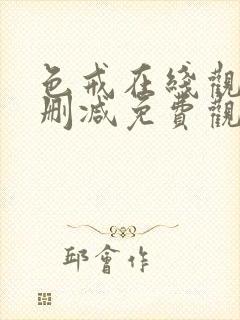 色戒在綫觀
刪减免費觀
邱會作